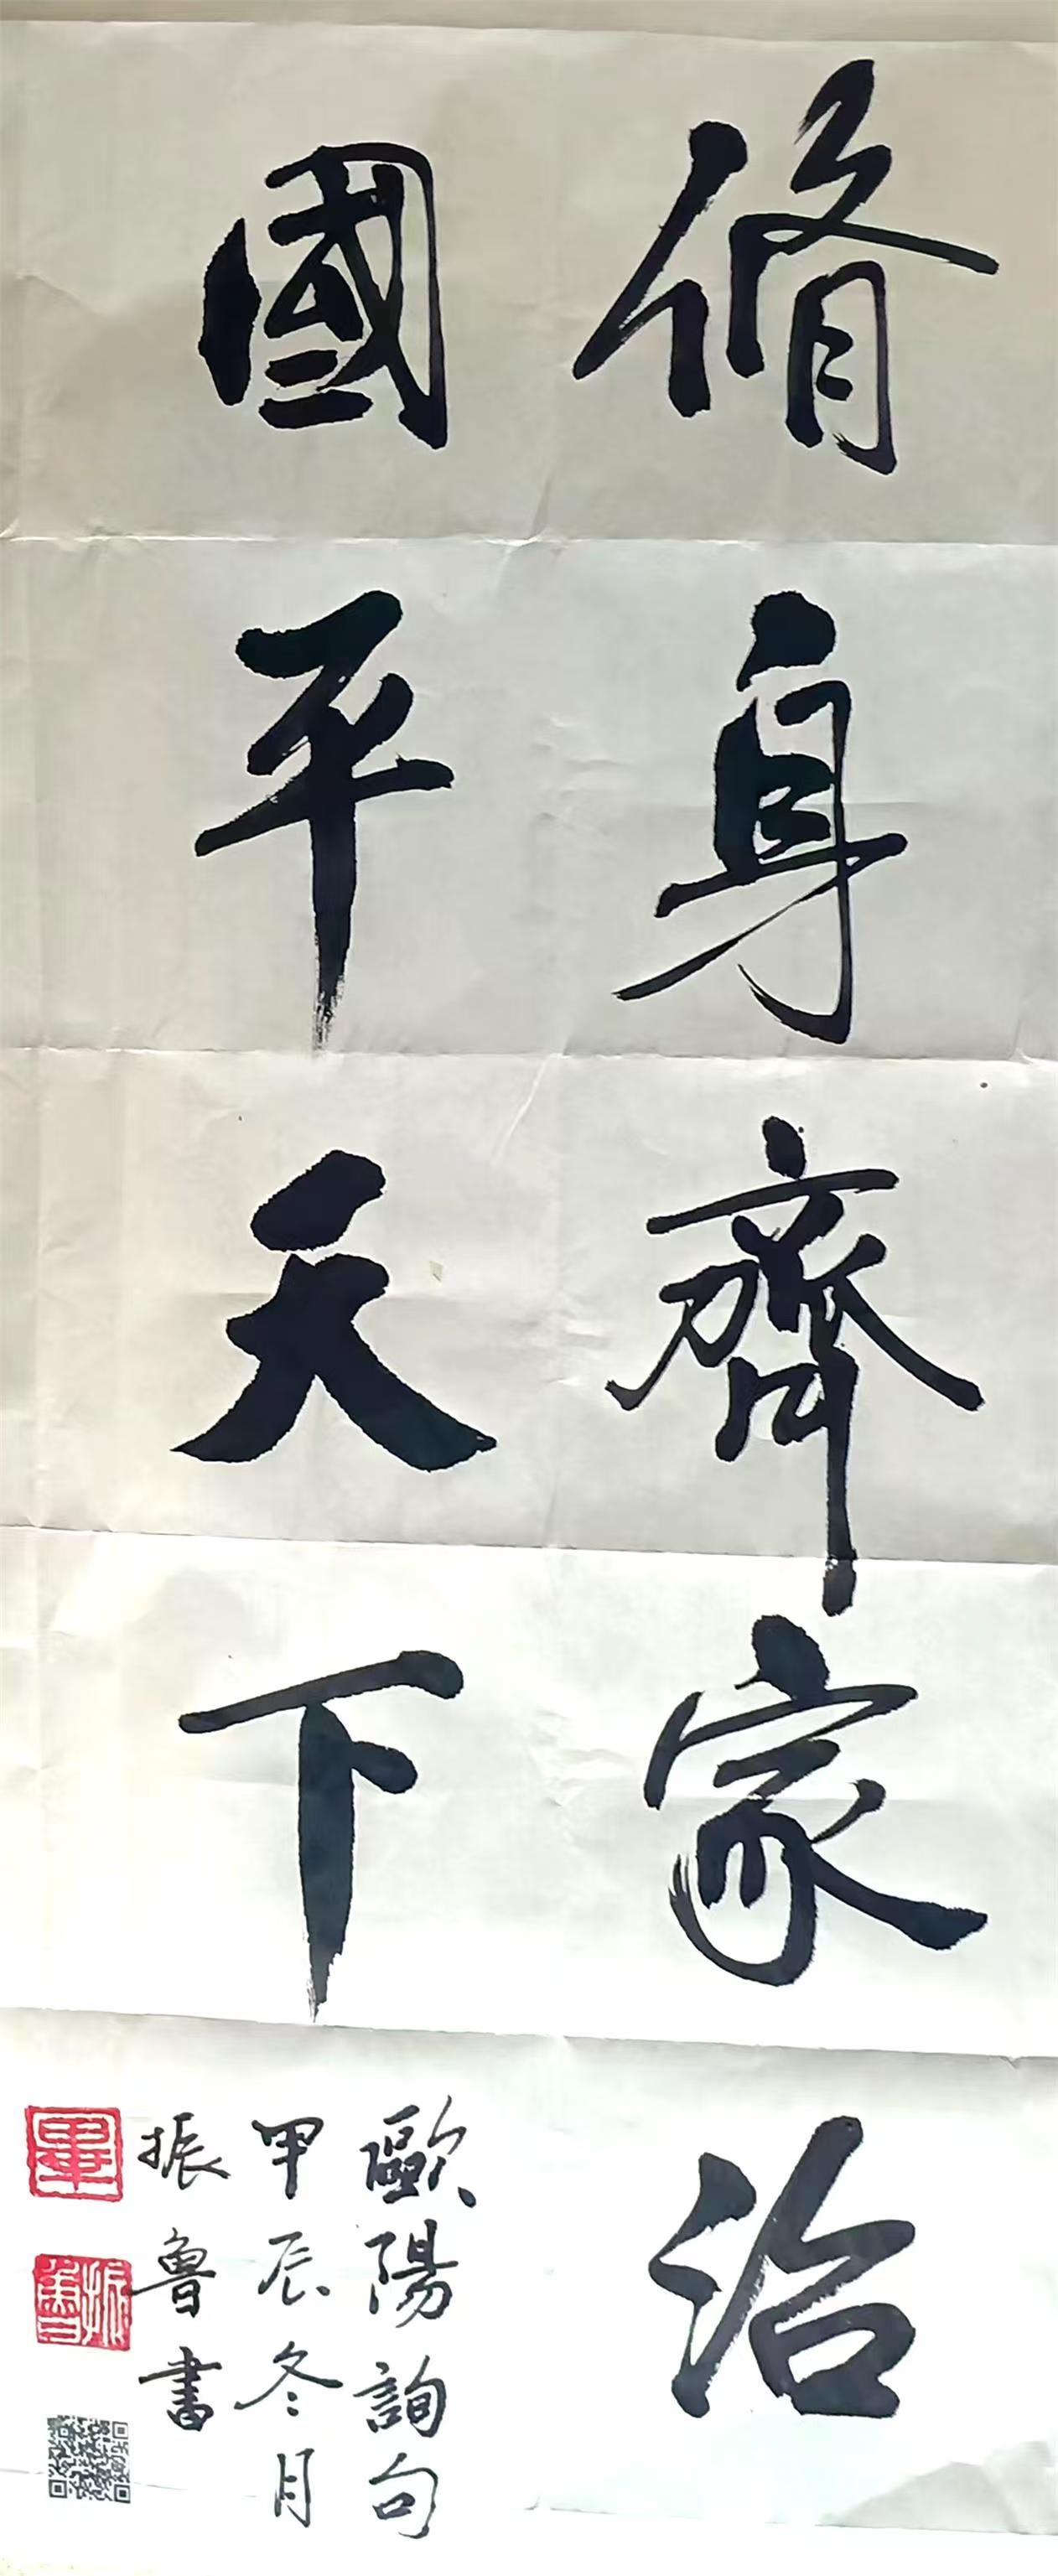 脩身齊家治
國平天下
歐陽詢句
甲辰冬月
振魯書
畢
振魯